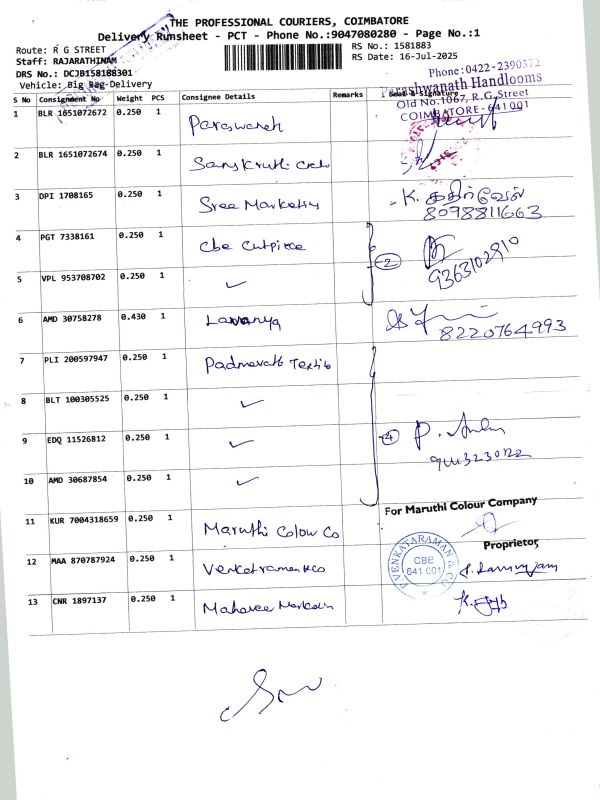 THE PROFESSIONAL COURIERS, COIMBATORE
Delivery Runsheet - PCT - Phone No.:9047080280 - Page No.:1
Route: R G STREET
RS No.: 1581883
Staff: RAJARATHINAM
RS Date: 16-Jul-2025
DRS No.: DCJB158188301
Vehicle: Big Bag-Delivery
Phone:0422-2390372
Parashwanath Handlooms
Old No.1067, R.G.Street
COIMBATORE-641001
S No Consignment No Weight PCS Consignee Details Remarks Seal & Signature
1 BLR 1651072672 0.250 1 Paraswanath
2 BLR 1651072674 0.250 1 Sanskruthi
3 DPI 1708165 0.250 1 Sree Marketing K. கதிர்வேல்
8098811663
4 PGT 7338161 0.250 1 Cbe Cutpiece
2
9363102910
5 VPL 953708702 0.250 1 ✓
6 AMD 30758278 0.430 1 Lavanya
8220764993
7 PLI 200597947 0.250 1 Padmavathi Textile
8 BLT 100305525 0.250 1 ✓
9 EDQ 11526812 0.250 1 ✓ 4 P.
10 AMD 30687854 0.250 1 ✓
For Maruthi Colour Company
11 KUR 7004318659 0.250 1 Maruthi Colour Co
Proprietor
12 MAA 870787924 0.250 1 Venkatraman & Co
VENKATARAMAN & CO
CBE
641 001
13 CNR 1897137 0.250 1 Mahaveer